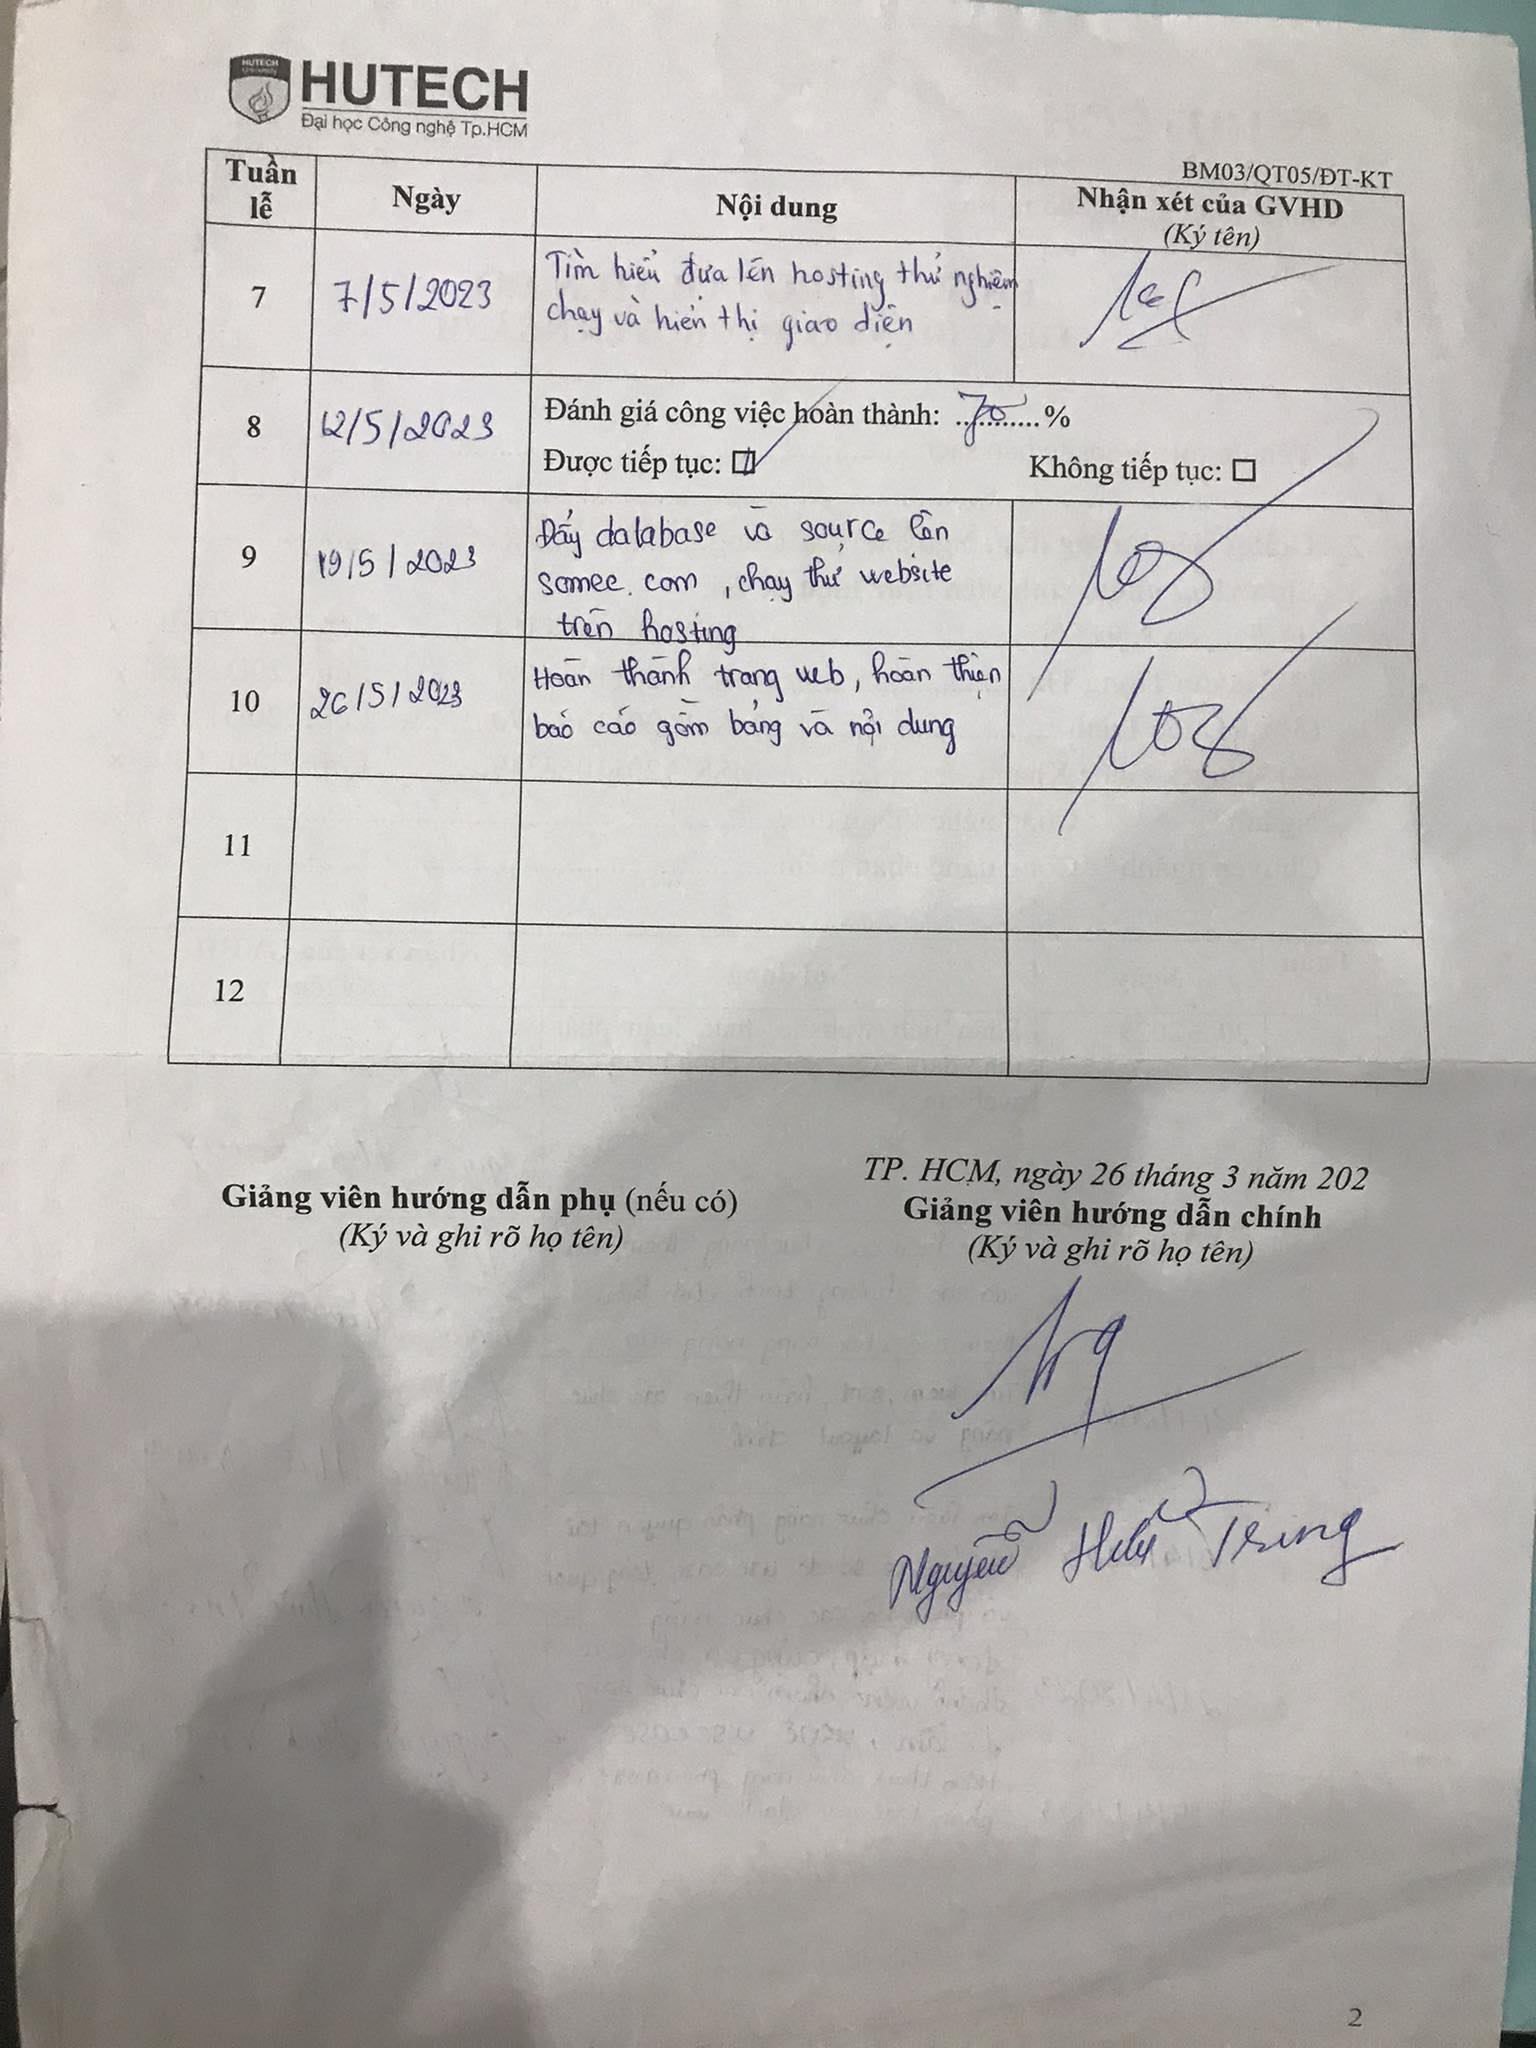 HUTECH
University
HUTECH
Đại học Công nghệ Tp.HCM
BM03/QT05/ĐT-KT
Tuần lễ
Ngày
Nội dung
Nhận xét của GVHD
(Ký tên)
7
7/5/2023
Tìm hiểu đưa lên hosting thử nghiệm
chạy và hiển thị giao diện
8
12/5/2023
Đánh giá công việc hoàn thành: ..70..%
Được tiếp tục: ☑
Không tiếp tục: ☐
9
19/5/2023
Đẩy database và source lên
somee.com, chạy thử website
trên hosting
10
26/5/2023
Hoàn thành trang web, hoàn thiện
báo cáo gồm bảng và nội dung
11
12
TP. HCM, ngày 26 tháng 3 năm 202
Giảng viên hướng dẫn phụ (nếu có)
(Ký và ghi rõ họ tên)
Giảng viên hướng dẫn chính
(Ký và ghi rõ họ tên)
Nguyễn Hữu Trung
2